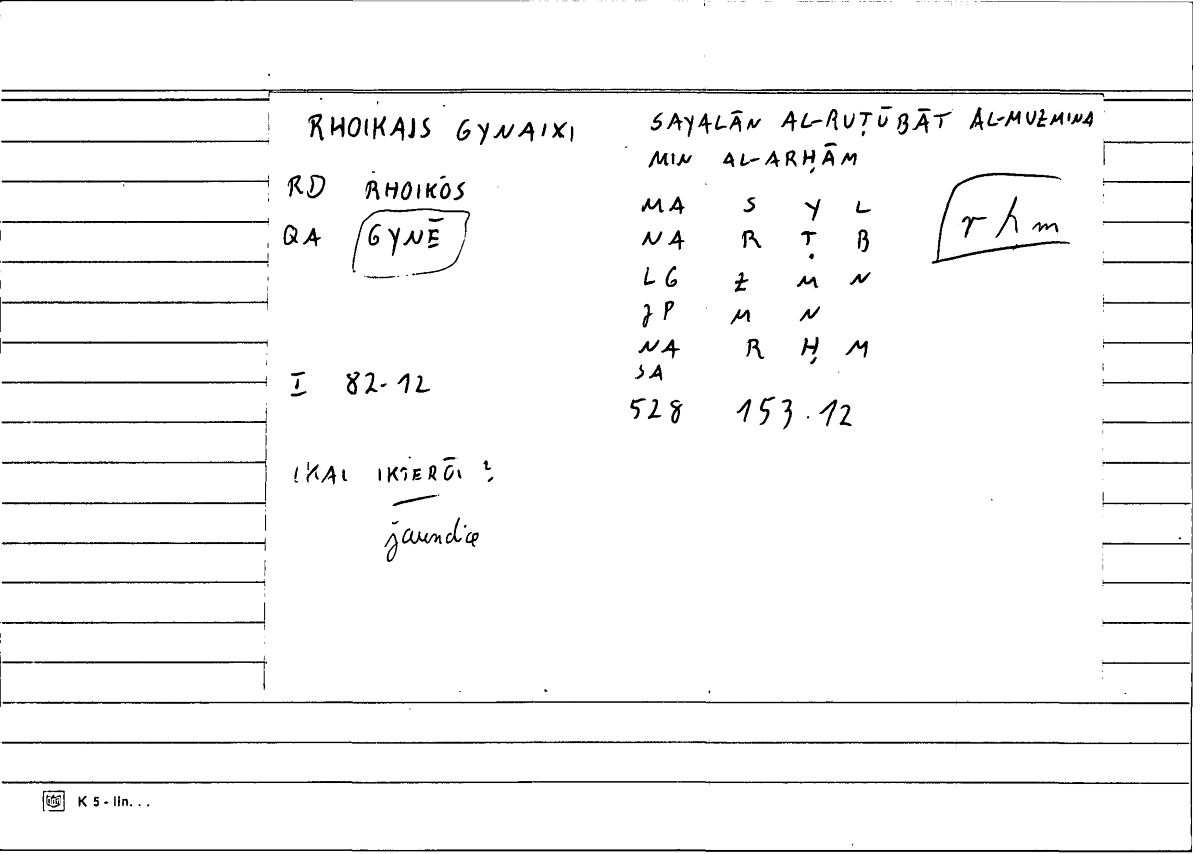 RHOIKAIS GYNAIXI
RD RHOIKOS
QA GYNĒ
I 82-12
!KAI IKTERŌI ?
jaundice
SAYALĀN AL-RUṬŪBĀT AL-MUZMINA
MIN AL-ARḤĀM
MA S Y L
NA R Ṭ B
LG Z M N
JP M N
NA R Ḥ M
SA
528 153.12
r h m
K 5 - lin. . .